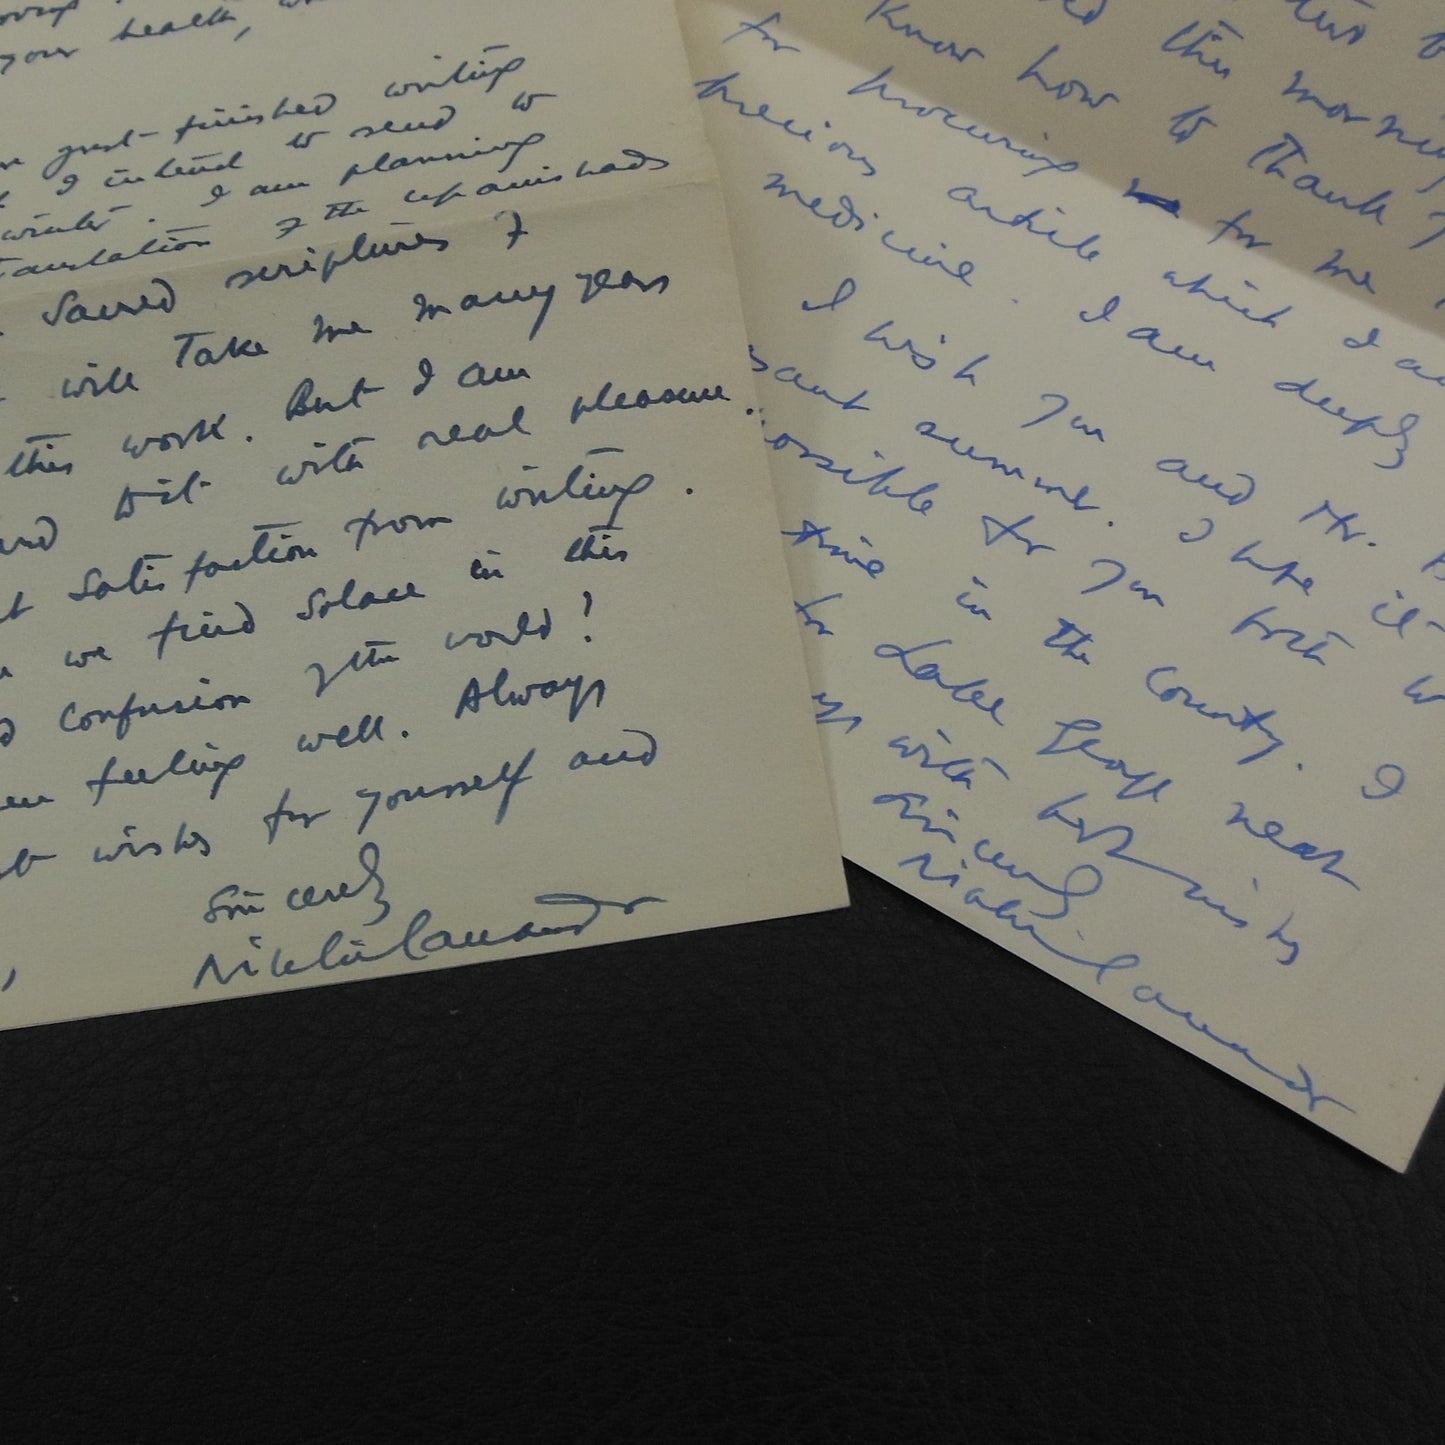 your health,
just finished writing
I intend to send to
winter. I am planning
translation of the Upanishads
Sacred scriptures of
will take me many years
this work. But I am
it with real pleasure.
satisfaction from writing.
we find solace in this
confusion of the world!
feeling well. Always
wishes for yourself and
Sincerely
Nikhilananda
this
this morning
know how to thank
for procuring for me
precious article which I am
medicine. I am deeply
I wish you and Mr.
summer. I hope it
possible for you both
time in the country. I
for Lake George next
with best wishes
Sincerely
Nikhilananda